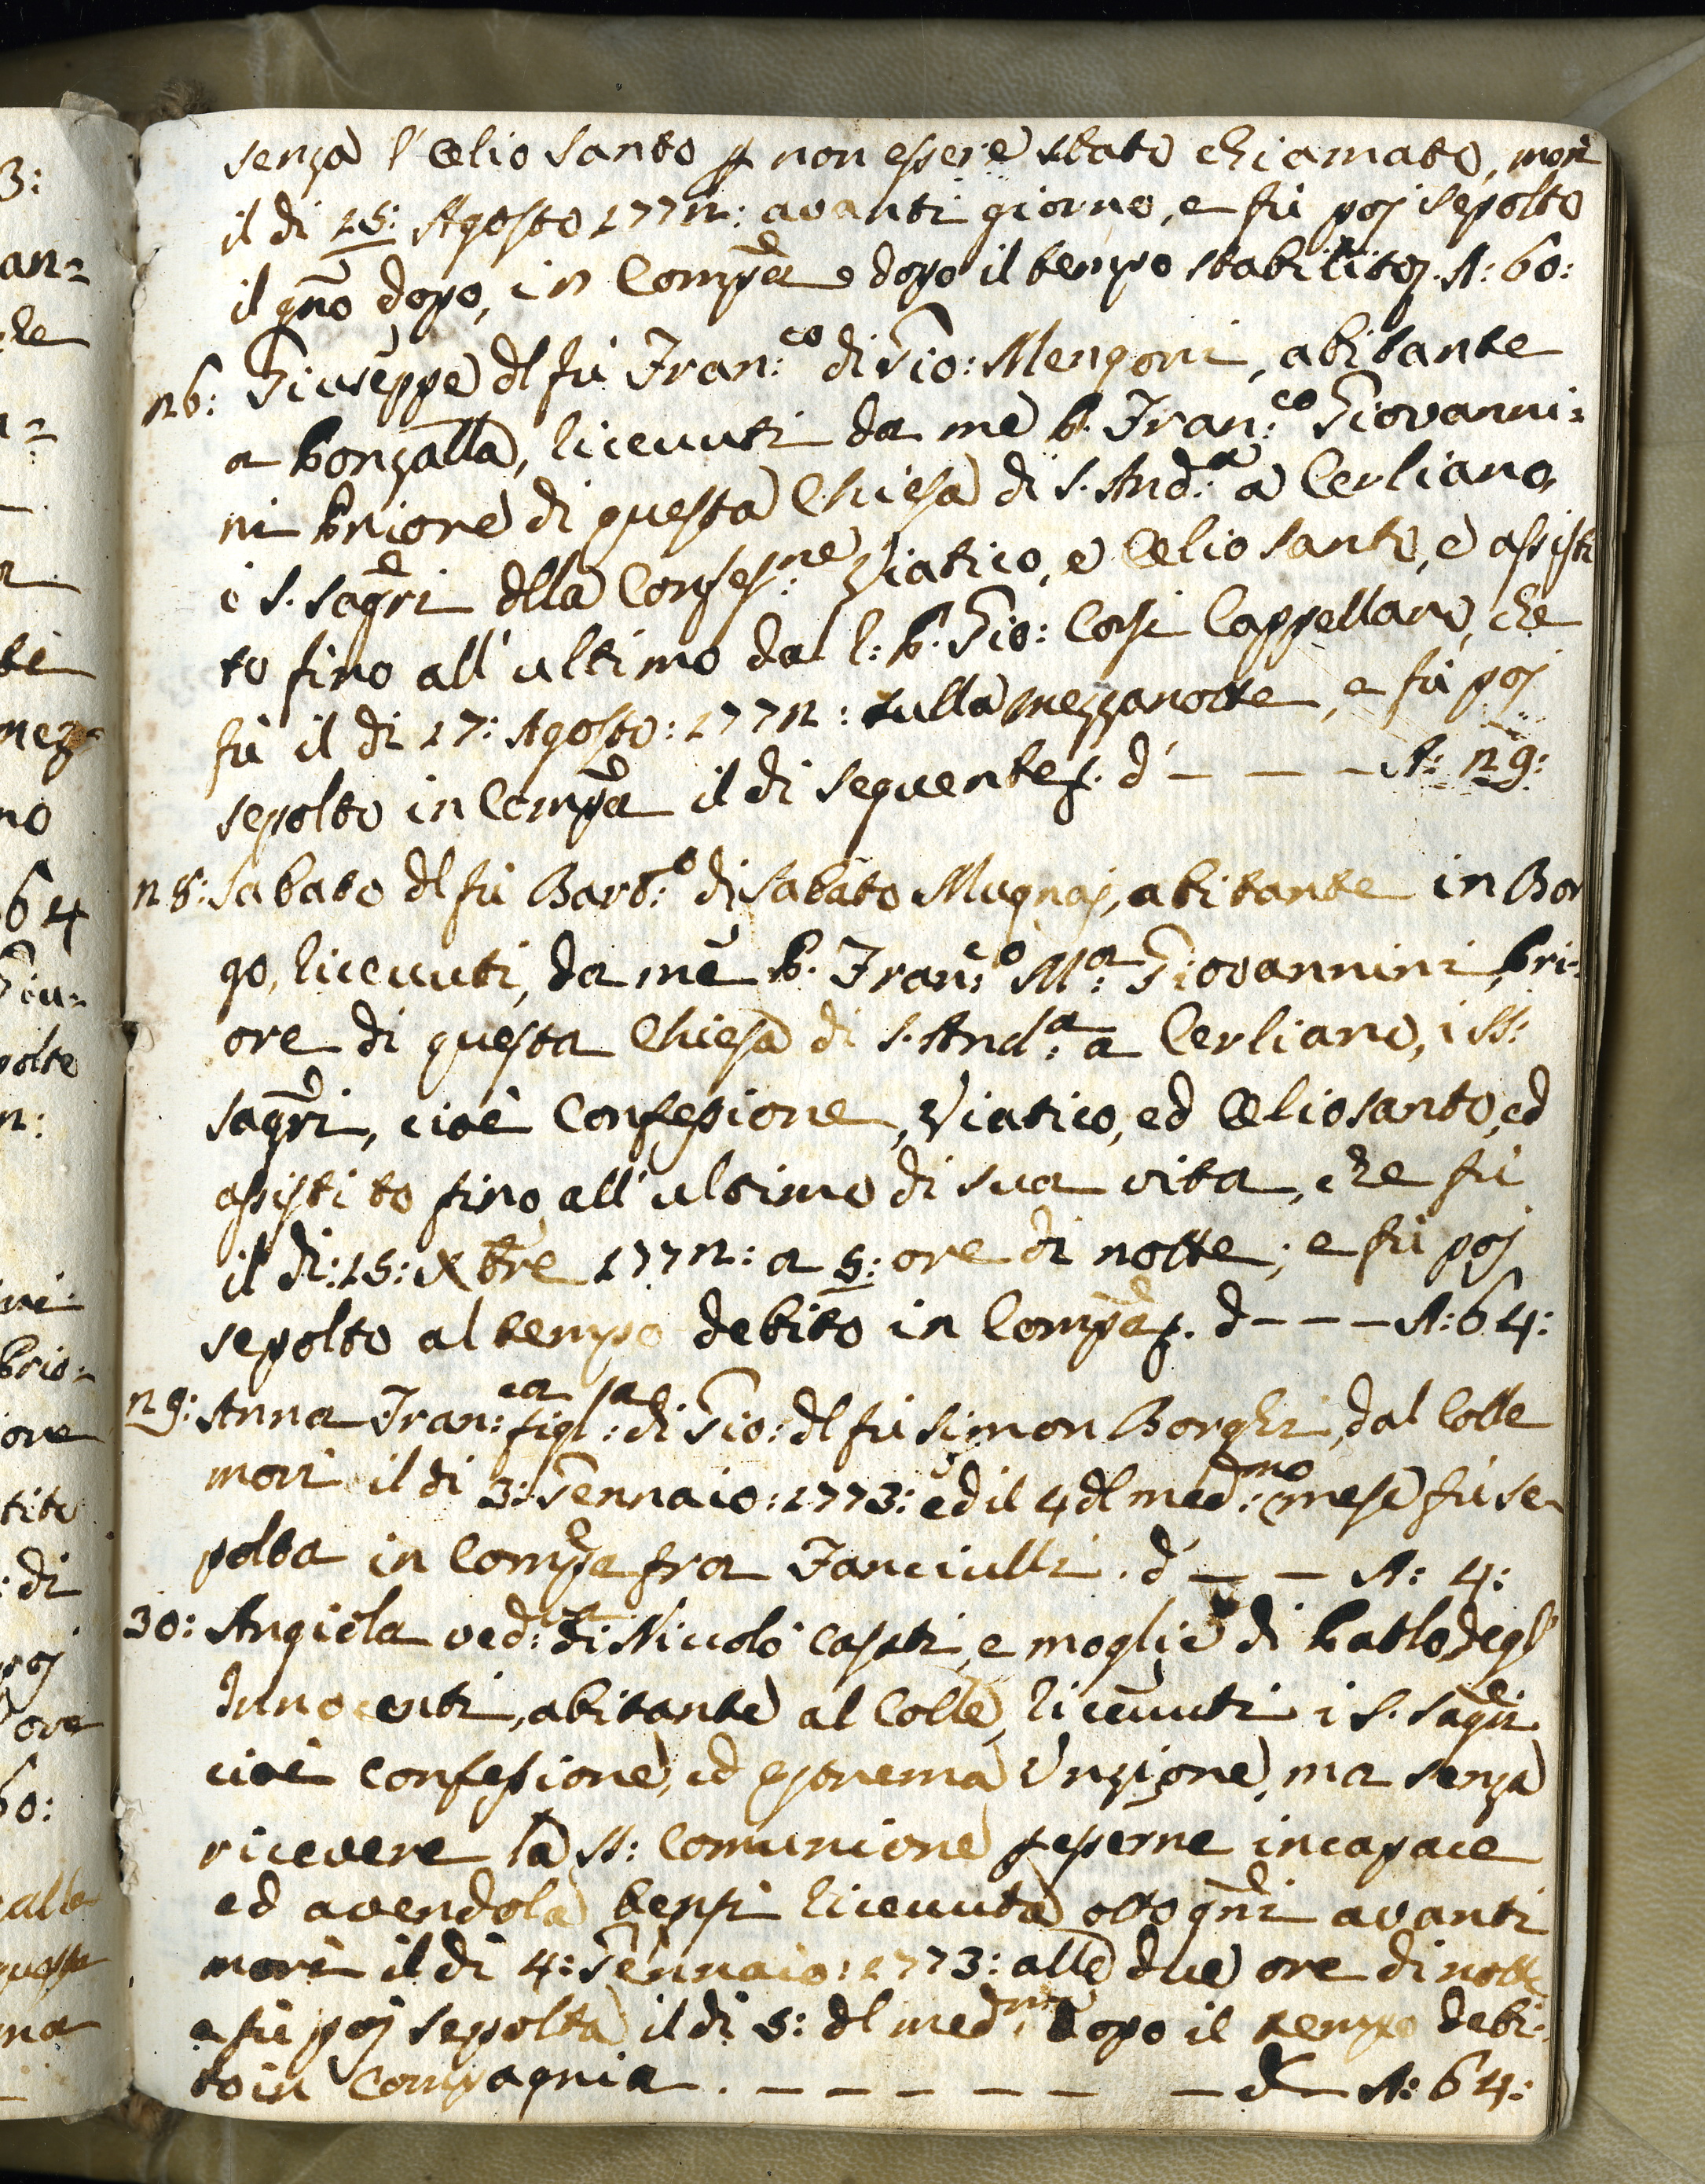 senza l'Olio Santo p non essere stato chiamato, morì
il di 15: Agosto 1772: avanti giorno, e fù poj sepolto
il gno dopo, in Compa e dopo il tempo stabilito. A: 60:
26: Giuseppe dl fù Fran:co di Gio: Mengoni, abitante
a Ponzalla, licevuti da me P. Fran:co Giovanni=
ni Priore di questa Chiesa di S. And:a a Cerliano,
i S. Sagri della Confes:ne Viatico, e Olio Santo, e assisti
to fino all'ultimo dal l: P. Gio: Cosi Cappellano, che
fù il di 17: Agosto: 1772: sulla mezzanotte, e fù poj
sepolto in Compa il di seguente p. d' — — — A: 29:
28: Sabato dl fù Bart:o di Sabato Mugnaj, abitante in Bor
go, licevuti, da me P. Fran:co Ma: Giovannini, Pri=
ore di questa Chiesa di S. And:a a Cerliano, i SS:
Sagri, cioè Confessione, Viatico, ed Olio Santo, ed
assistito fino all'ultimo di sua vita, che fù
il di: 15: Xbre 1772: a 5: ore di notte; e fù poj
sepolto al tempo debito in Compa p. d - - - A: 64:
29: Anna Fran:ca figl:la di Gio: dl fù Simon Borghi, dal Colle
morì il di 3: Gennaio: 1773: ed il 4 dl med:mo mese fù se
polta in Compa fra Fanciulli. d' — — A: 4:
30: Angiola ved:a di Niccolò Casti, e moglie di Paolo degl'
Innocenti, abitante al Colle, licevuti i S. Sagri
cioè confessione, ed estrema Unzione, ma senza
ricevere la SS: Comunione p esserne incapace
ed avendola bensì licevuta otto gni avanti
morì il di 4: Gennaio: 1773: alle due ore di notte
e fù poj sepolta il di 5: dl med:mo dopo il tempo debi=
to in Compagnia. — — — — — — d — A: 64: